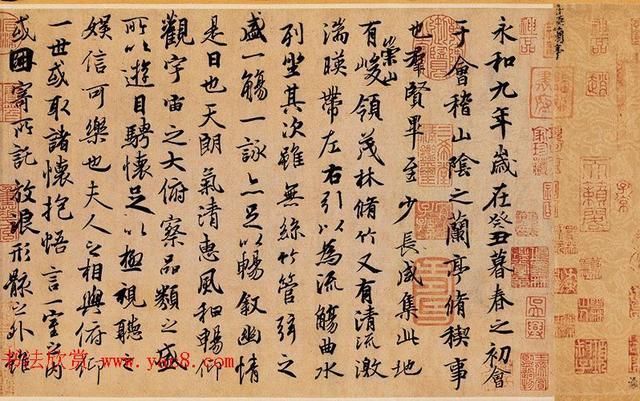 永和九年歲在癸丑暮春之初會
于會稽山陰之蘭亭脩稧事
也羣賢畢至少長咸集此地
有崇山峻領茂林脩竹又有清流激
湍暎帶左右引以為流觴曲水
列坐其次雖無絲竹管弦之
盛一觴一詠亦足以暢敘幽情
是日也天朗氣清惠風和暢仰
觀宇宙之大俯察品類之盛
所以遊目騁懷足以極視聽之
娛信可樂也夫人之相與俯仰
一世或取諸懷抱悟言一室之內
或因寄所託放浪形骸之外雖
书法欣赏 www.yac8.com